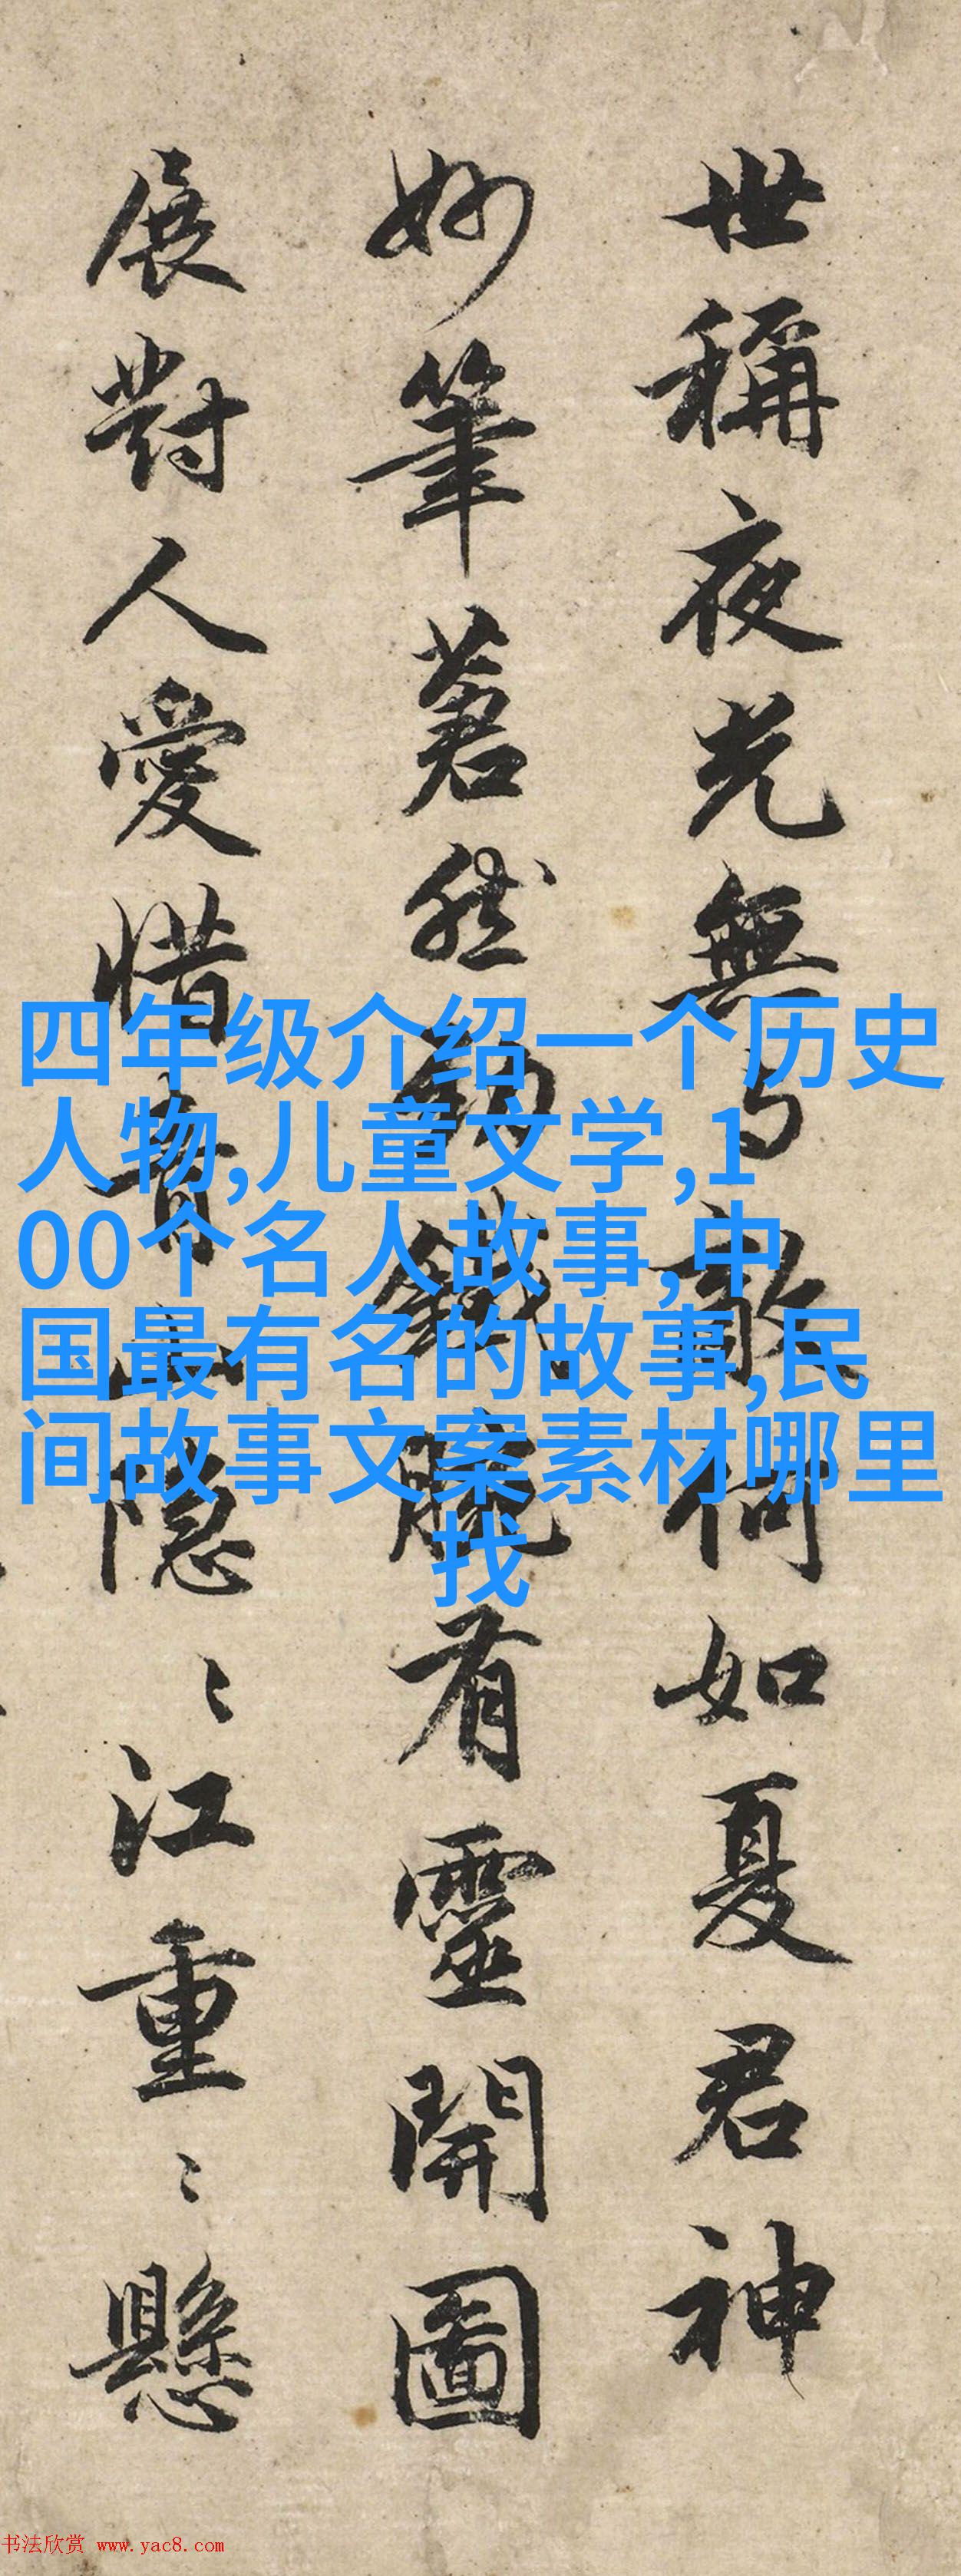 世稱夜光無与敵何如夏君神
妙筆然鐵腕有靈開圖
展對人愛惜青山隐〻江重〻懸
四年级介绍一个历史
人物,儿童文学,1
00个名人故事,中
国最有名的故事,民
间故事文案素材哪里
找
书法欣赏 www.yac8.com